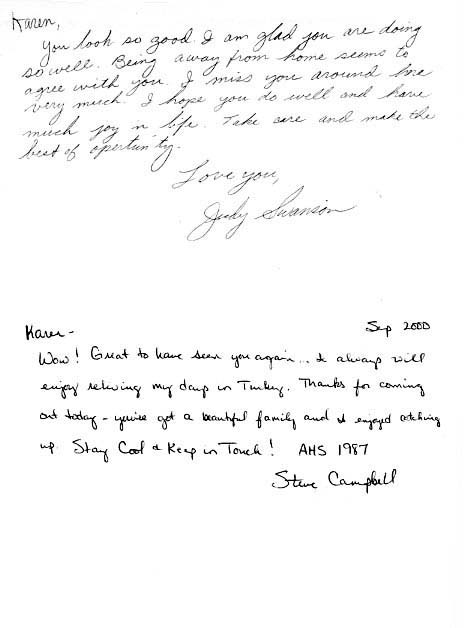 Karen,
You look so good. I am glad you are doing
so well. Being away from home seems to
agree with you. I miss you around here
very much. I hope you do well and have
much joy in life. Take care and make the
best of opertunity.
Love you,
Judy Swanson
Karen - Sep 2000
Wow! Great to have seen you again... I always will
enjoy reliving my days in Turkey. Thanks for coming
out today - you've got a beautiful family and I enjoyed catching
up. Stay Cool & Keep in Touch! AHS 1987
Steve Campbell